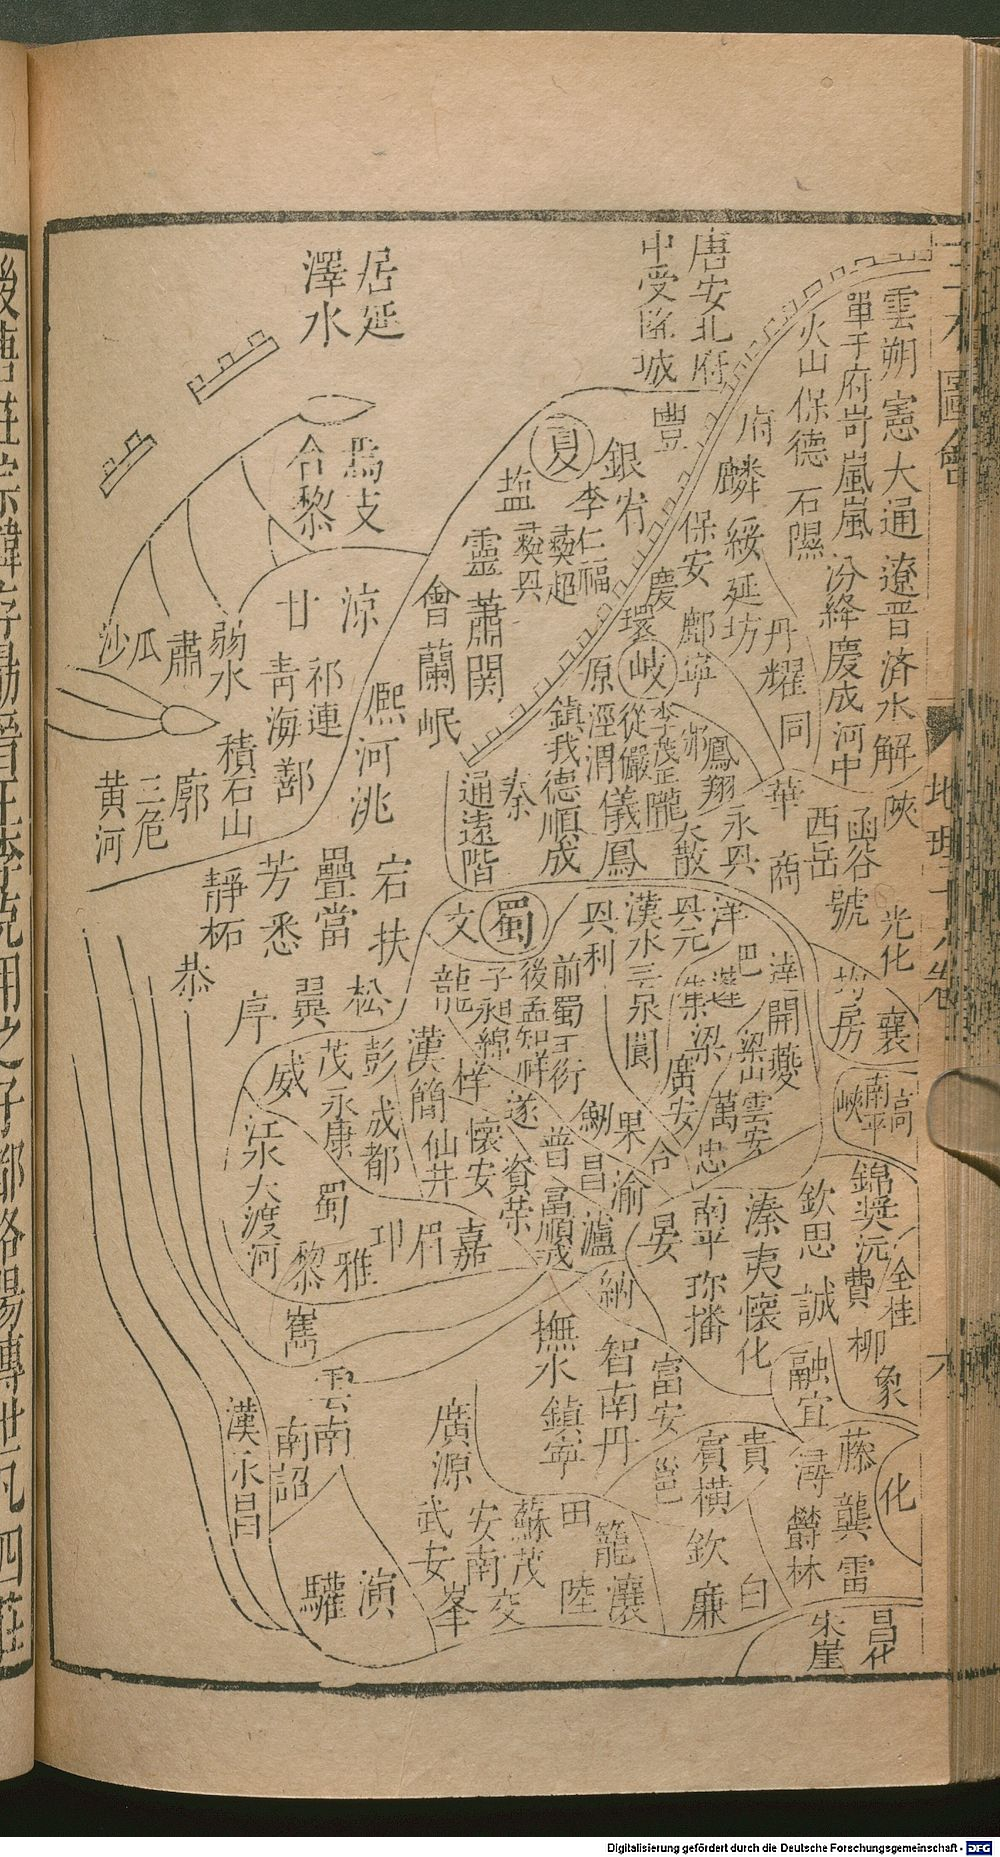 圖會
地理
六
唐安北府
中受降城
居延
澤水
雲朔憲大通遼晉済水解陝
單于府岢嵐嵐汾絳慶成河中
火山保德石隰
府麟綏延坊
丹耀同
豐
銀宥
夏
李仁福
彞超
彞興
塩
靈
蕭關
會蘭岷
保安鄜寧
慶環
岐
李茂貞
從儼
原涇渭儀鳳
鎮戎德順成
隴
鳳翔
大散
永興
華商
西岳
函谷
虢
秦
通遠階
焉支
合黎
涼
甘
祁連
青海鄯
弱水
肅
瓜
沙
積石山
廓
三危
黃河
熈河洮
宕扶松
疊當翼
芳悉
靜柘
恭
文
蜀
龍
前蜀王衍
後孟知祥
子昶
綿
興利
漢水三泉閬
興元
洋
巴
蓬
達開夔
梁山
雲安
萬忠
廣安
果合
渝
昌
瀘
普
遂
資榮
富順戎
梓
懷安
漢簡
仙井
彭成都
茂永康
威
江水大渡河
蜀
黎
雅
邛
眉
嘉
嶲
光化
襄
均房
高
南平
峽
錦奬沅費
全桂
柳象
欽思誠
融宜
溱夷懷化
南平
珎播
晏
納
智南丹
撫水
鎮寧
富安
雲南
南詔
漢永昌
廣源
武安
安南
蘇茂
交
峯
田
籠
陸
瀼
邕
賓橫
貴
欽
廉
白
潯
藤
龔
雷
欝林
化
昌化
朱崖
驩
演
Digitalisierung gefördert durch die Deutsche Forschungsgemeinschaft - DFG